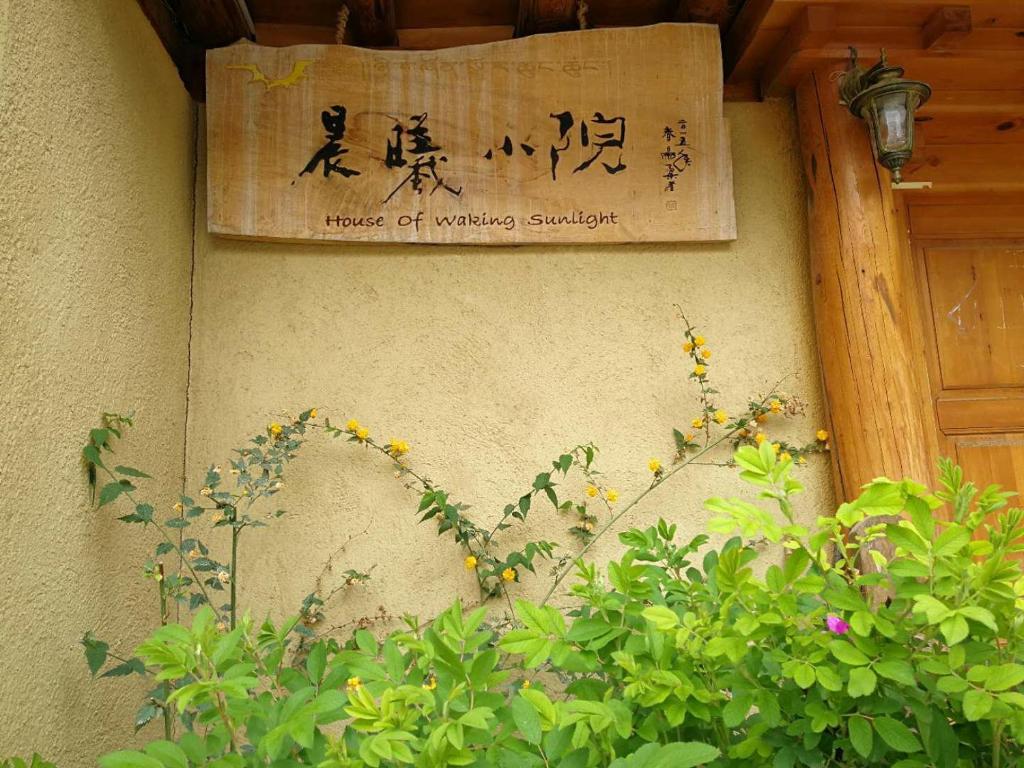 晨曦小院
二〇一五年
House Of Waking Sunlight